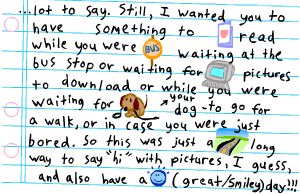 ...lot to say. Still, I wanted you to
have something to read
while you were BUS waiting at the
bus stop or waiting for pictures
to download or while you were
waiting for your dog - to go for
a walk, or in case you were just
bored. So this was just a long
way to say "hi" with pictures, I guess,
and also have a (great/smiley) day!!!